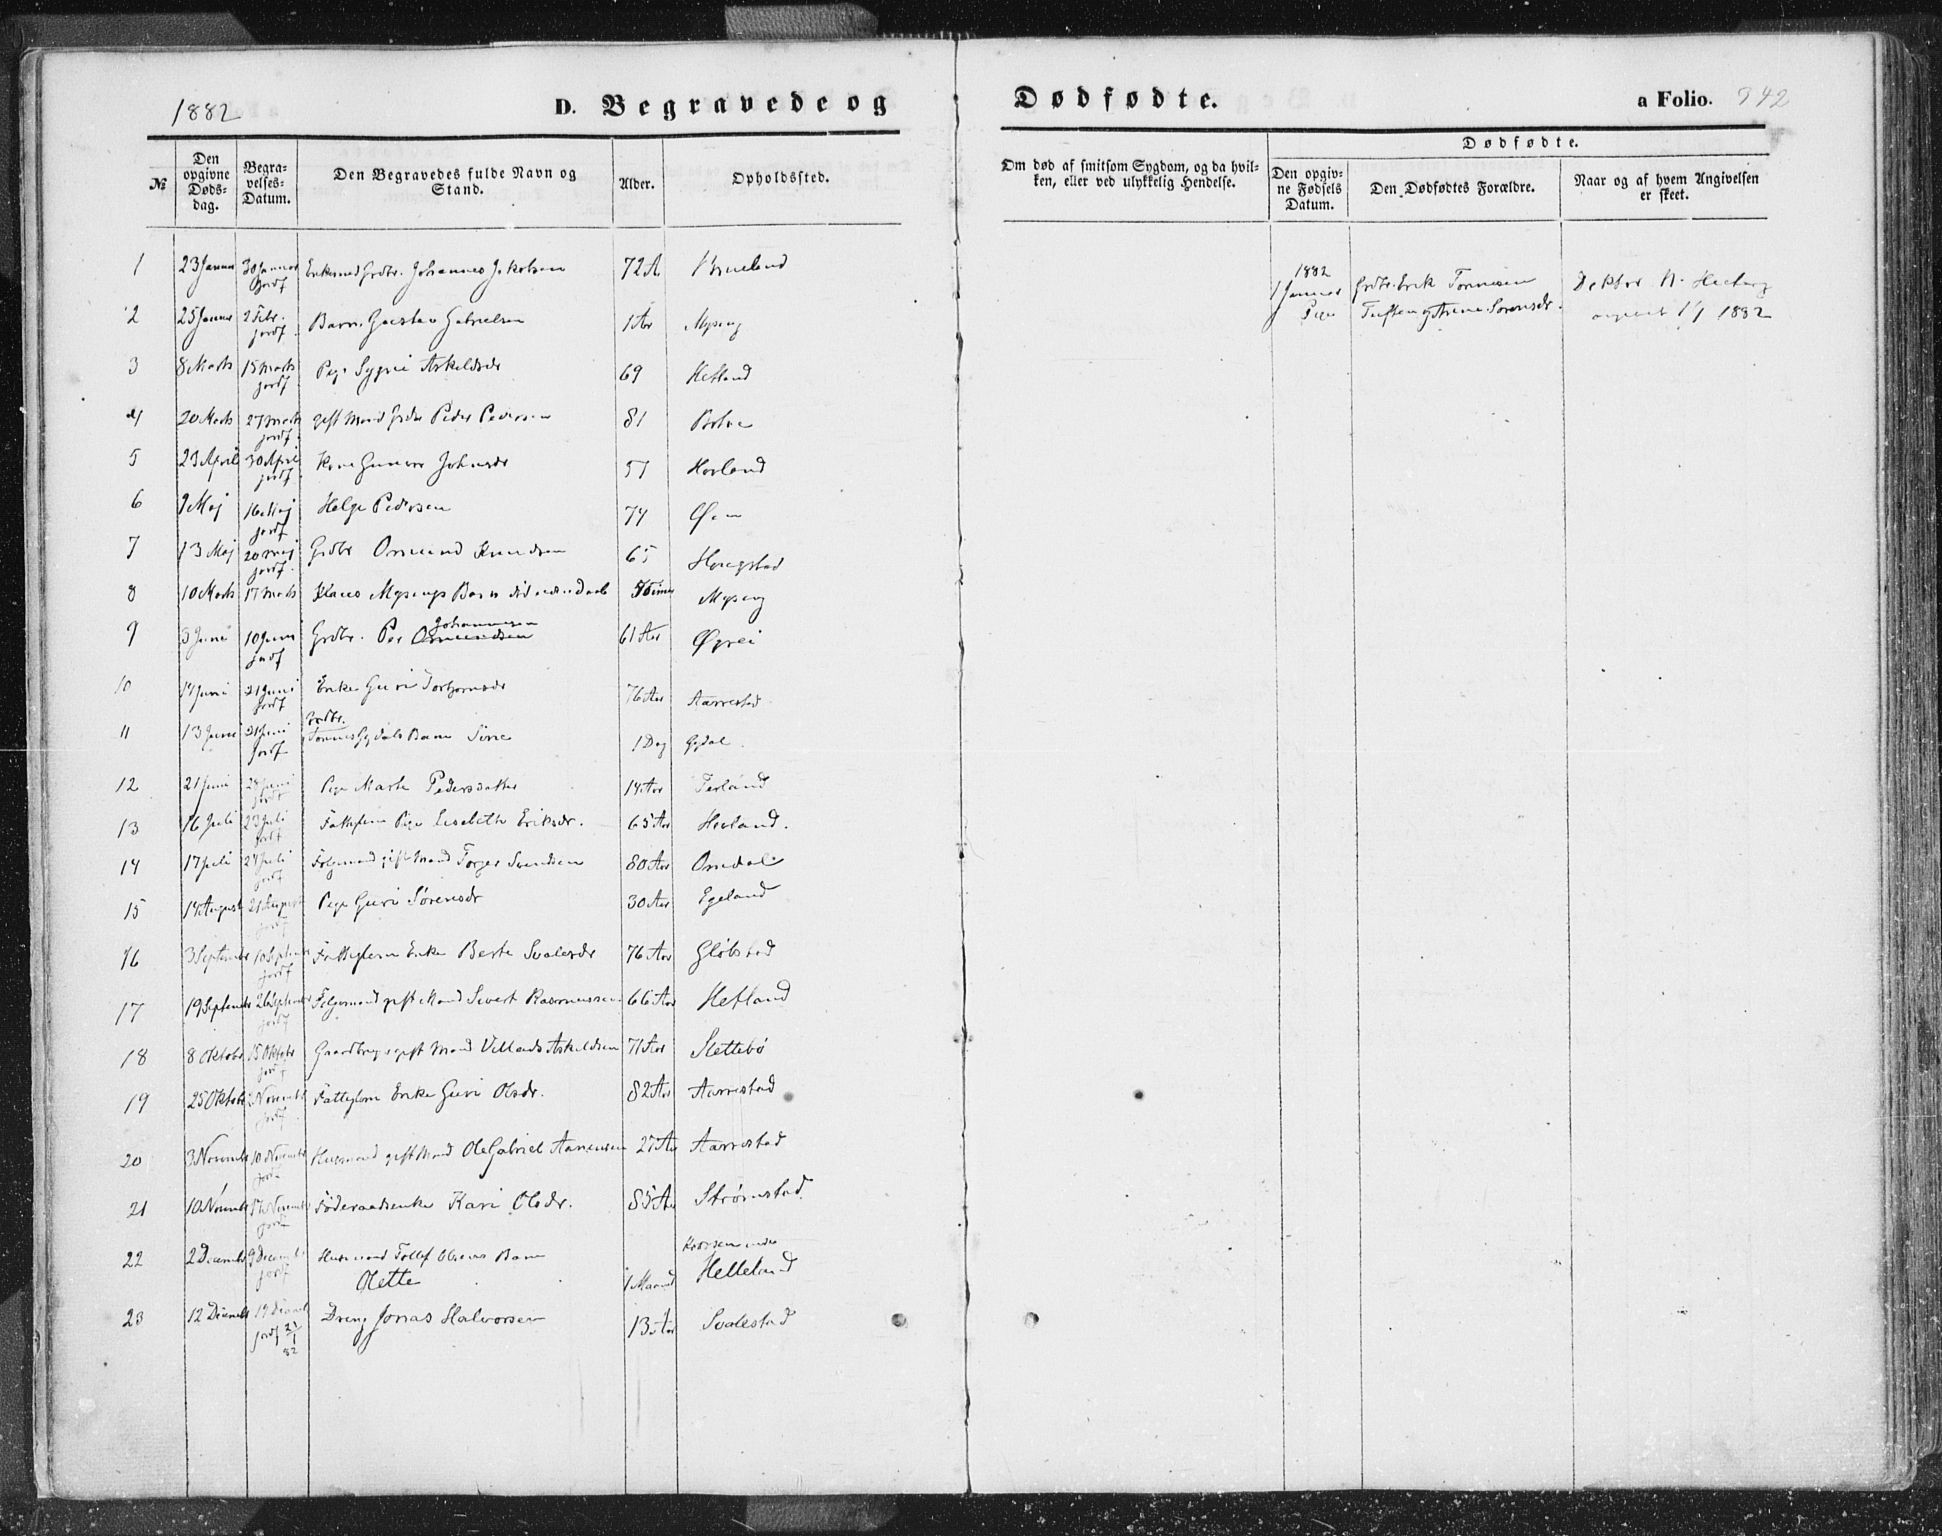 1882
D. Begravede og Dødfødte. a Folio. 342
№ Den opgivne Døds-dag. Begra-velses-Datum. Den Begravedes fulde Navn og Stand. Alder. Opholdssted.
Om død af smitsom Sygdom, og da hvil-ken, eller ved ulykkelig Hendelse.
Dødfødte.
Den opgiv-ne Fødsels Datum. Den Dødfødtes Forældre. Naar og af hvem Angivelsen er skeet.
1 23 Januar 30 Januar jordf Enkemand Grdbr. Johannes Jakobsen 72 A
2 25 Januar 2 Febr. jordf. Barn Gustav Gabrielsen 1 Aar Myseng
3 8 Marts 15 Marts jordf Pige Sygni Askeldsdr 69 Hetland
4 20 Marts 27 Marts jordf. gift Mand Grdbr Peder Pedersen 81
5 23 April 30 April jordf. Kone Gunvor Johnsdr 57 Hovland
6 9 Maj 16 Maj jordf Helge Pedersen 74
7 13 Maj 20 Maj jordf. Grdbr Omund Knudsen 65
8 10 Marts 17 Marts Klaus Mysengs Barn Myseng
9 3 Juni 10 Juni jordf Grdbr. Per Johannesen 61 Aar Øgrei
10 14 Juni 21 Juni jordf Enke Guri Torbjørnsdr 76 Aar Aarrestad
11 13 Juni 21 Juni jordf Grdbr. Tønnes Gydals Barn Sine 1 Dag Gydal.
12 21 Juni 28 Juni jordf Pige Marte Pedersdatter 14 Aar Terland
13 16 Juli 23 Juli jordf Fattiglem Pige Lisabeth Eriksdr. 65 Aar Hovland.
14 17 Juli 24 Juli jordf Følgemand gift Mand Torger Svendsen 80 Aar Omdal
15 14 August 21 August jordf Pige Guri Sørensdr 30 Aar Egeland
16 3 September 10 September jordf Fattiglem Enke Berte Svalesdr 76 Aar Gløbstad
17 19 September 26 September jordf Følgemand gift Mand Sivert Rasmussen 66 Aar Hetland
18 8 Oktobr 15 Oktobr jordf Gaardbruger gift Mand Villads Askeldsen 71 Aar Slettebø
19 25 Oktobr 2 Novembr jordf Fattiglem Enke Guri Olsdr. 82 Aar Aarrestad
20 3 Novembr 10 Novembr jordf Husmand gift Mand Ole Gabriel Aanensen 27 Aar Aarrestad
21 10 Novembr 17 Novembr jordf Føderaadsenke Kari Olsdr. 85 Aar Strømstad
22 2 Decembr 9 Decembr jordf Husmand Tollef Olsens Barn
Olette 1 Maaned under Helleland
23 12 Decembr 19 Decembr jordf 21/1 82 Dreng Jonas Halvorsen 13 Aar Svalestad
1882
1 Januar Grdbr. Erik Tønnesen Doktor
Pige Tuften og Arene Sørensdr. 1/1 1882